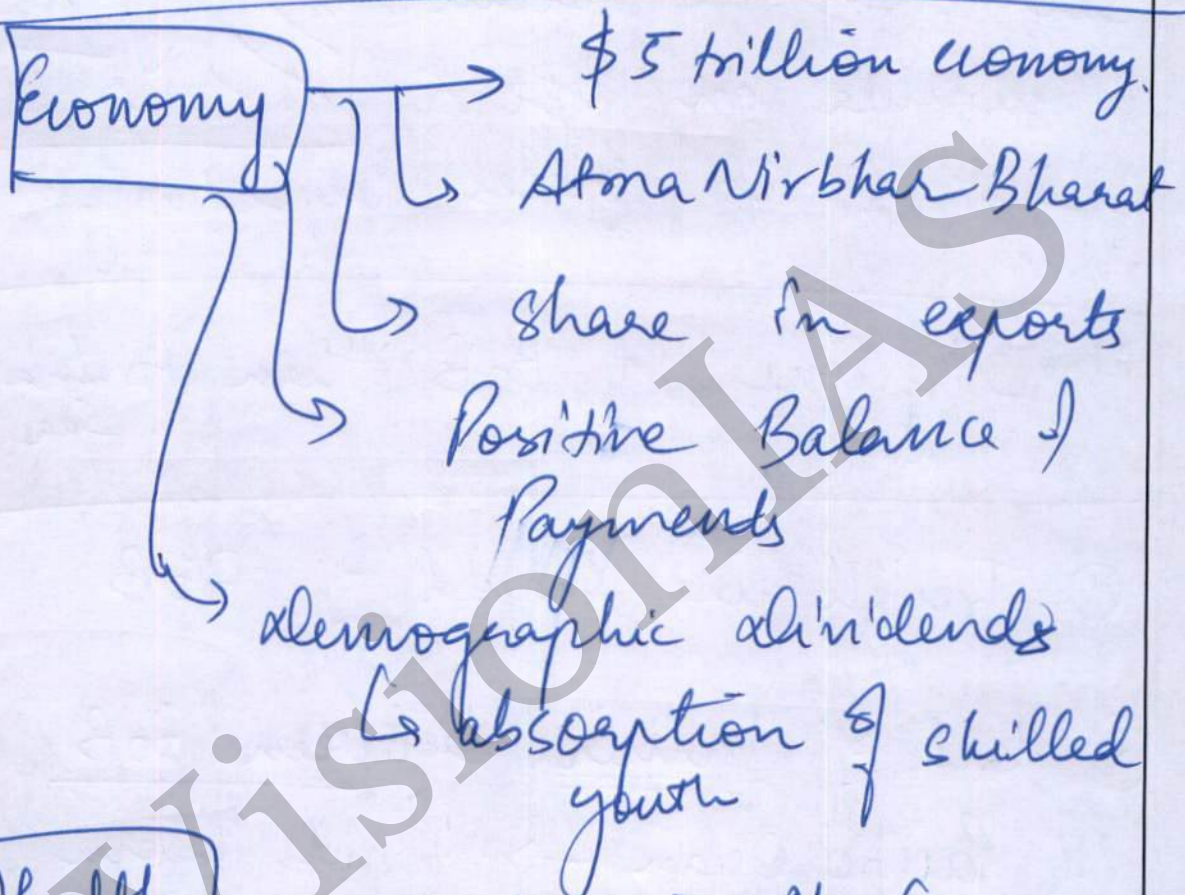 Economy
$5 trillion economy.
Atma Nirbhar Bharat
share in exports
Positive Balance of
Payments
Demographic dividends
absorption of skilled
youth
VisionIAS